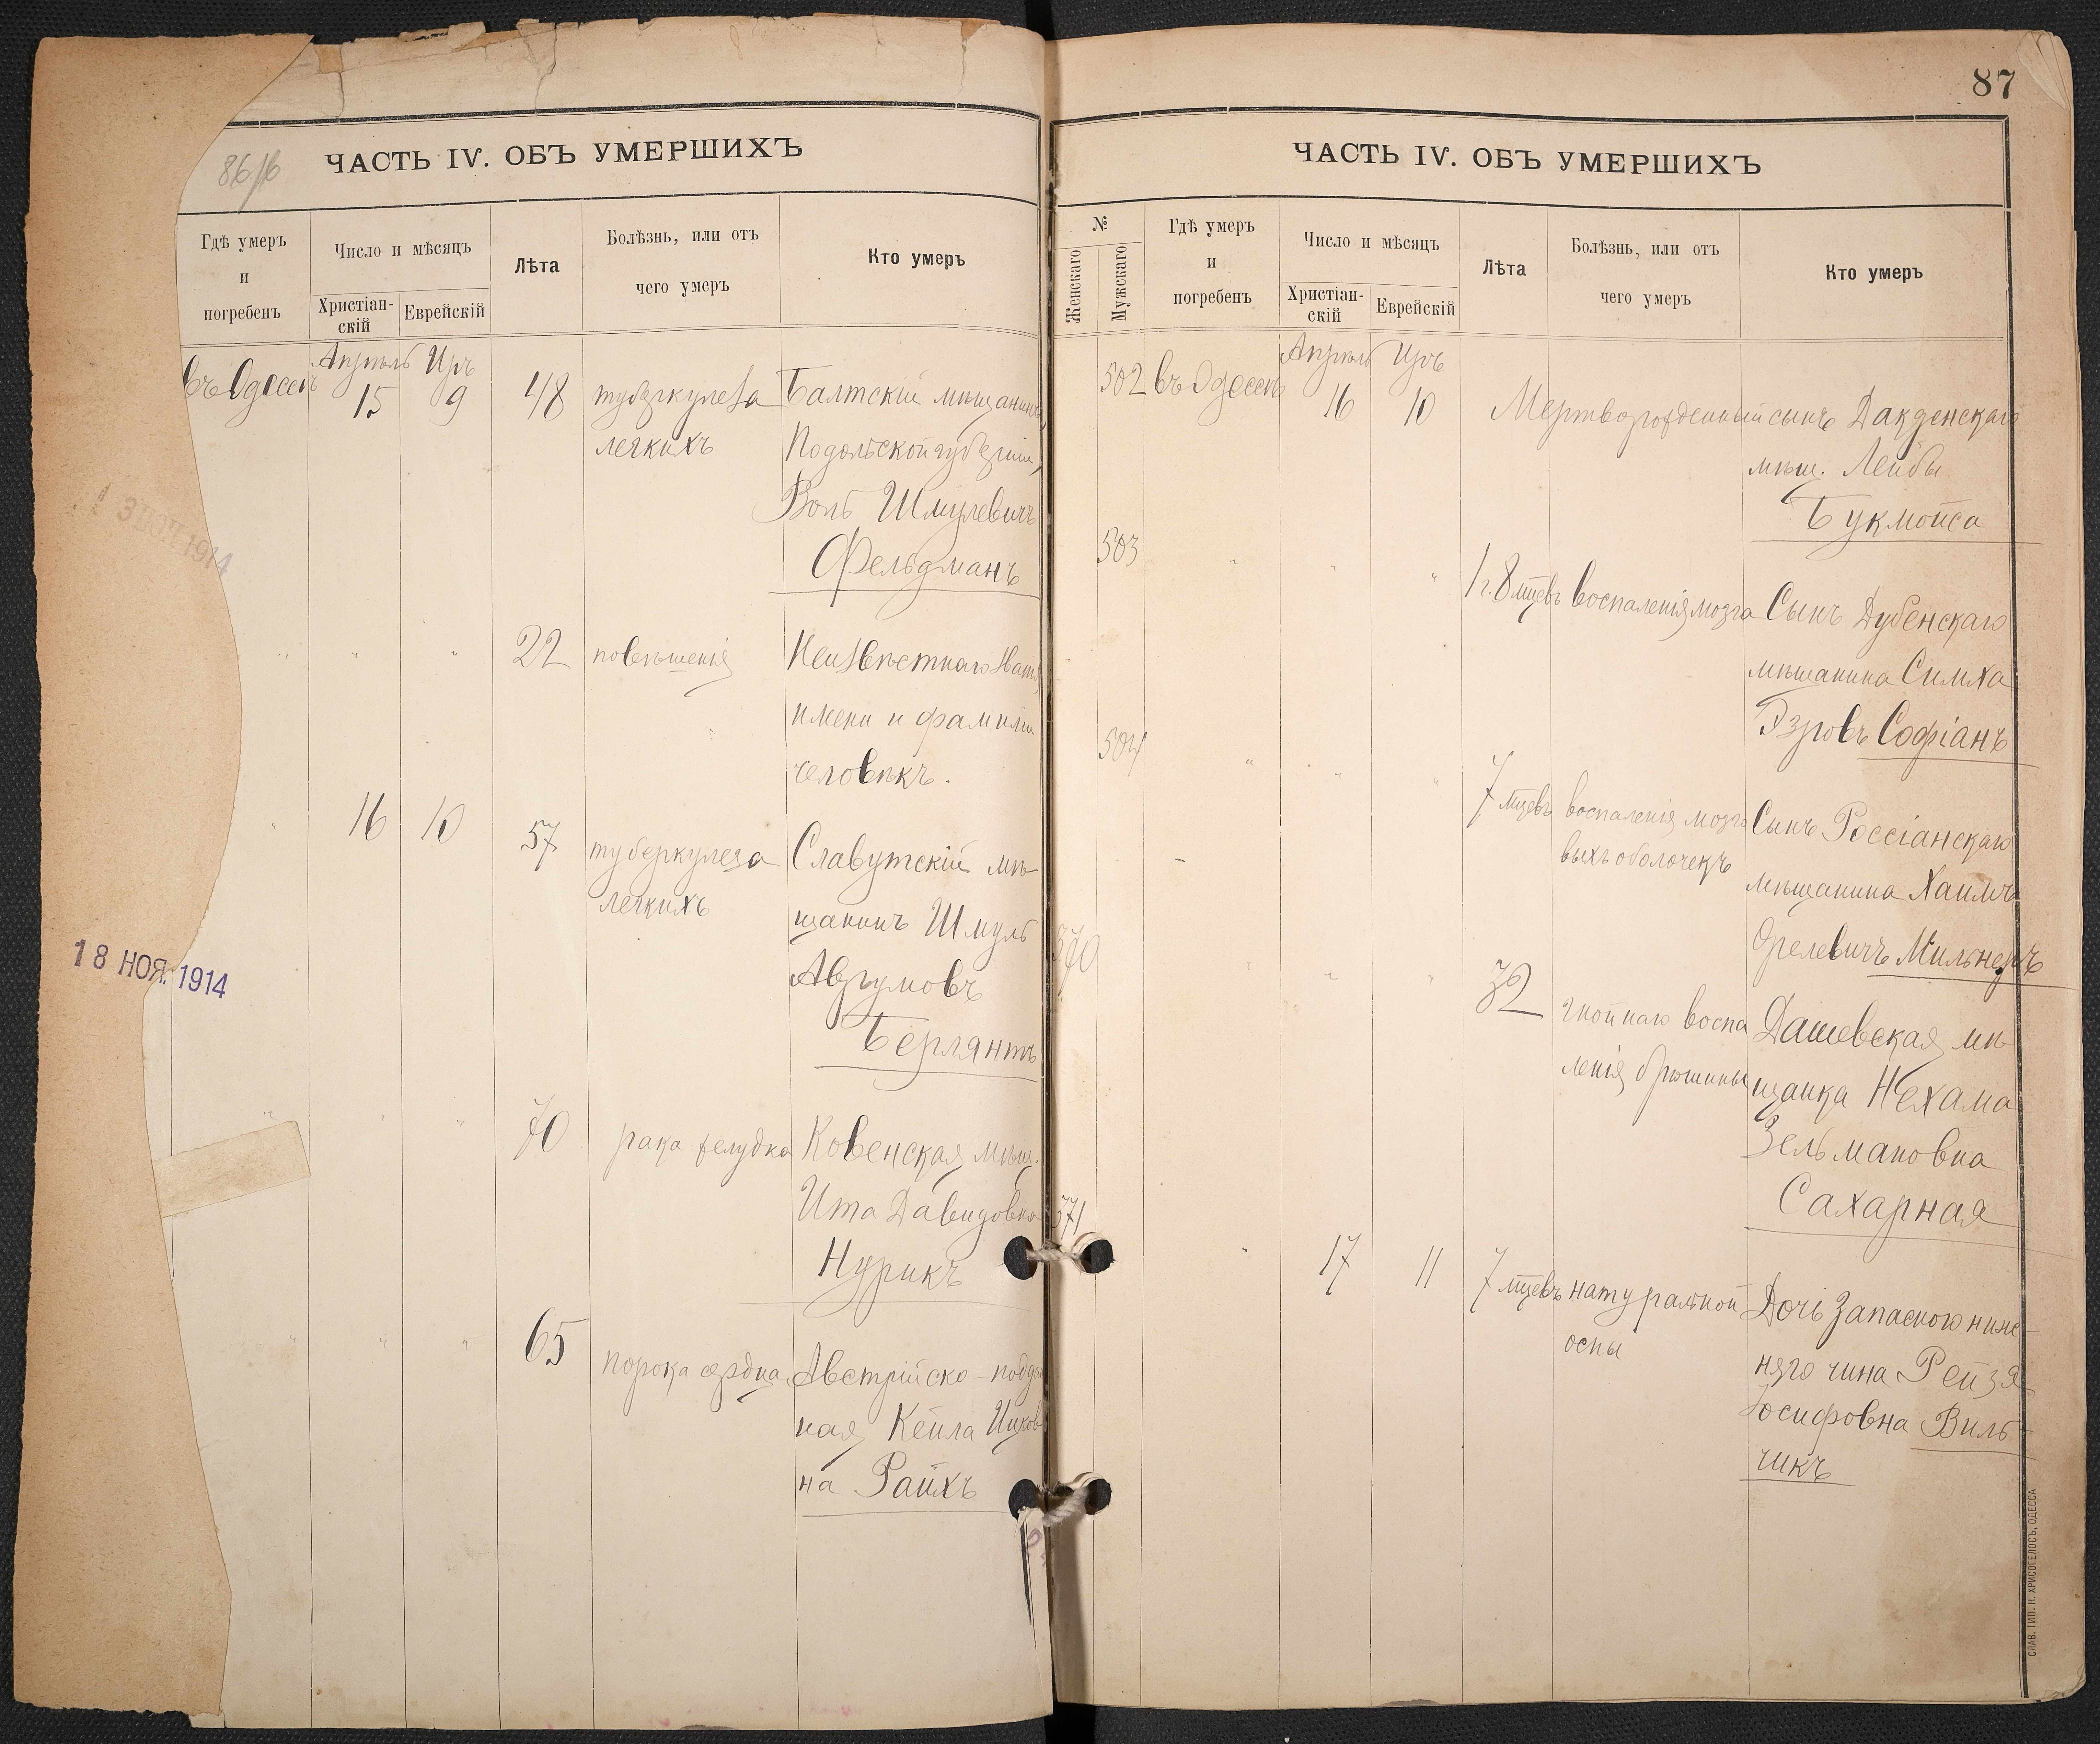 86/б
ЧАСТЬ IV. ОБЪ УМЕРШИХЪ
Гдѣ умеръ
и
погребенъ
Число и мѣсяцъ
Христіан-
скій
Еврейскій
Лѣта
Болѣзнь, или отъ
чего умеръ
Кто умеръ
Апрѣль Иръ
въ Одессѣ 15 9 48 туберкулеза Балтскій мѣщанинъ,
легкихъ Подольской губерніи,
Воль Шмулевичъ
Фельдманъ
" " " 22 повѣшенія Неизвѣстнаго званія
имени и фамиліи
человѣкъ.
" 16 10 57 туберкулеза Славутскій мѣ-
легкихъ щанинъ Шмуль
Аврумовъ
Берлянтъ
" " " 70 рака желудка Ковенская мѣщ.
Ита Давидовна
Нурикъ
" " " 65 порока сердца Австрійско-поддан
ная Кейла Ицков-
на Райхъ
18 НОЯ. 1914
87
ЧАСТЬ IV. ОБЪ УМЕРШИХЪ
№
Женскаго
Мужскаго
Гдѣ умеръ
и
погребенъ
Число и мѣсяцъ
Христіан-
скій
Еврейскій
Лѣта
Болѣзнь, или отъ
чего умеръ
Кто умеръ
Апрѣль Иръ
502 въ Одессѣ 16 10 Мертворожденный сынъ
мѣщ. Лейбы
Букмойса
503 " " " 1 г. 8 мцевъ воспаленія мозга Сынъ Дубенскаго
мѣщанина Симха
Эзровъ Софіанъ
504 " " " 7 мцевъ воспаленія мозго Сынъ Россіанскаго
выхъ оболочекъ мѣщанина Хаимъ
Орелевичъ Мильнеръ
370 " " " 32 гнойнаго воспа Дашевская мѣ-
ленія брюшины щанка Нехама
Зельмановна
Сахарная
371 " 17 11 7 мцевъ натуральной Дочь запасного ниж-
оспы няго чина Рейзя
Іосифовна Виль-
чикъ
СЛАВ. ТИП. Н. ХРИСОГЕЛОСЪ, ОДЕССА